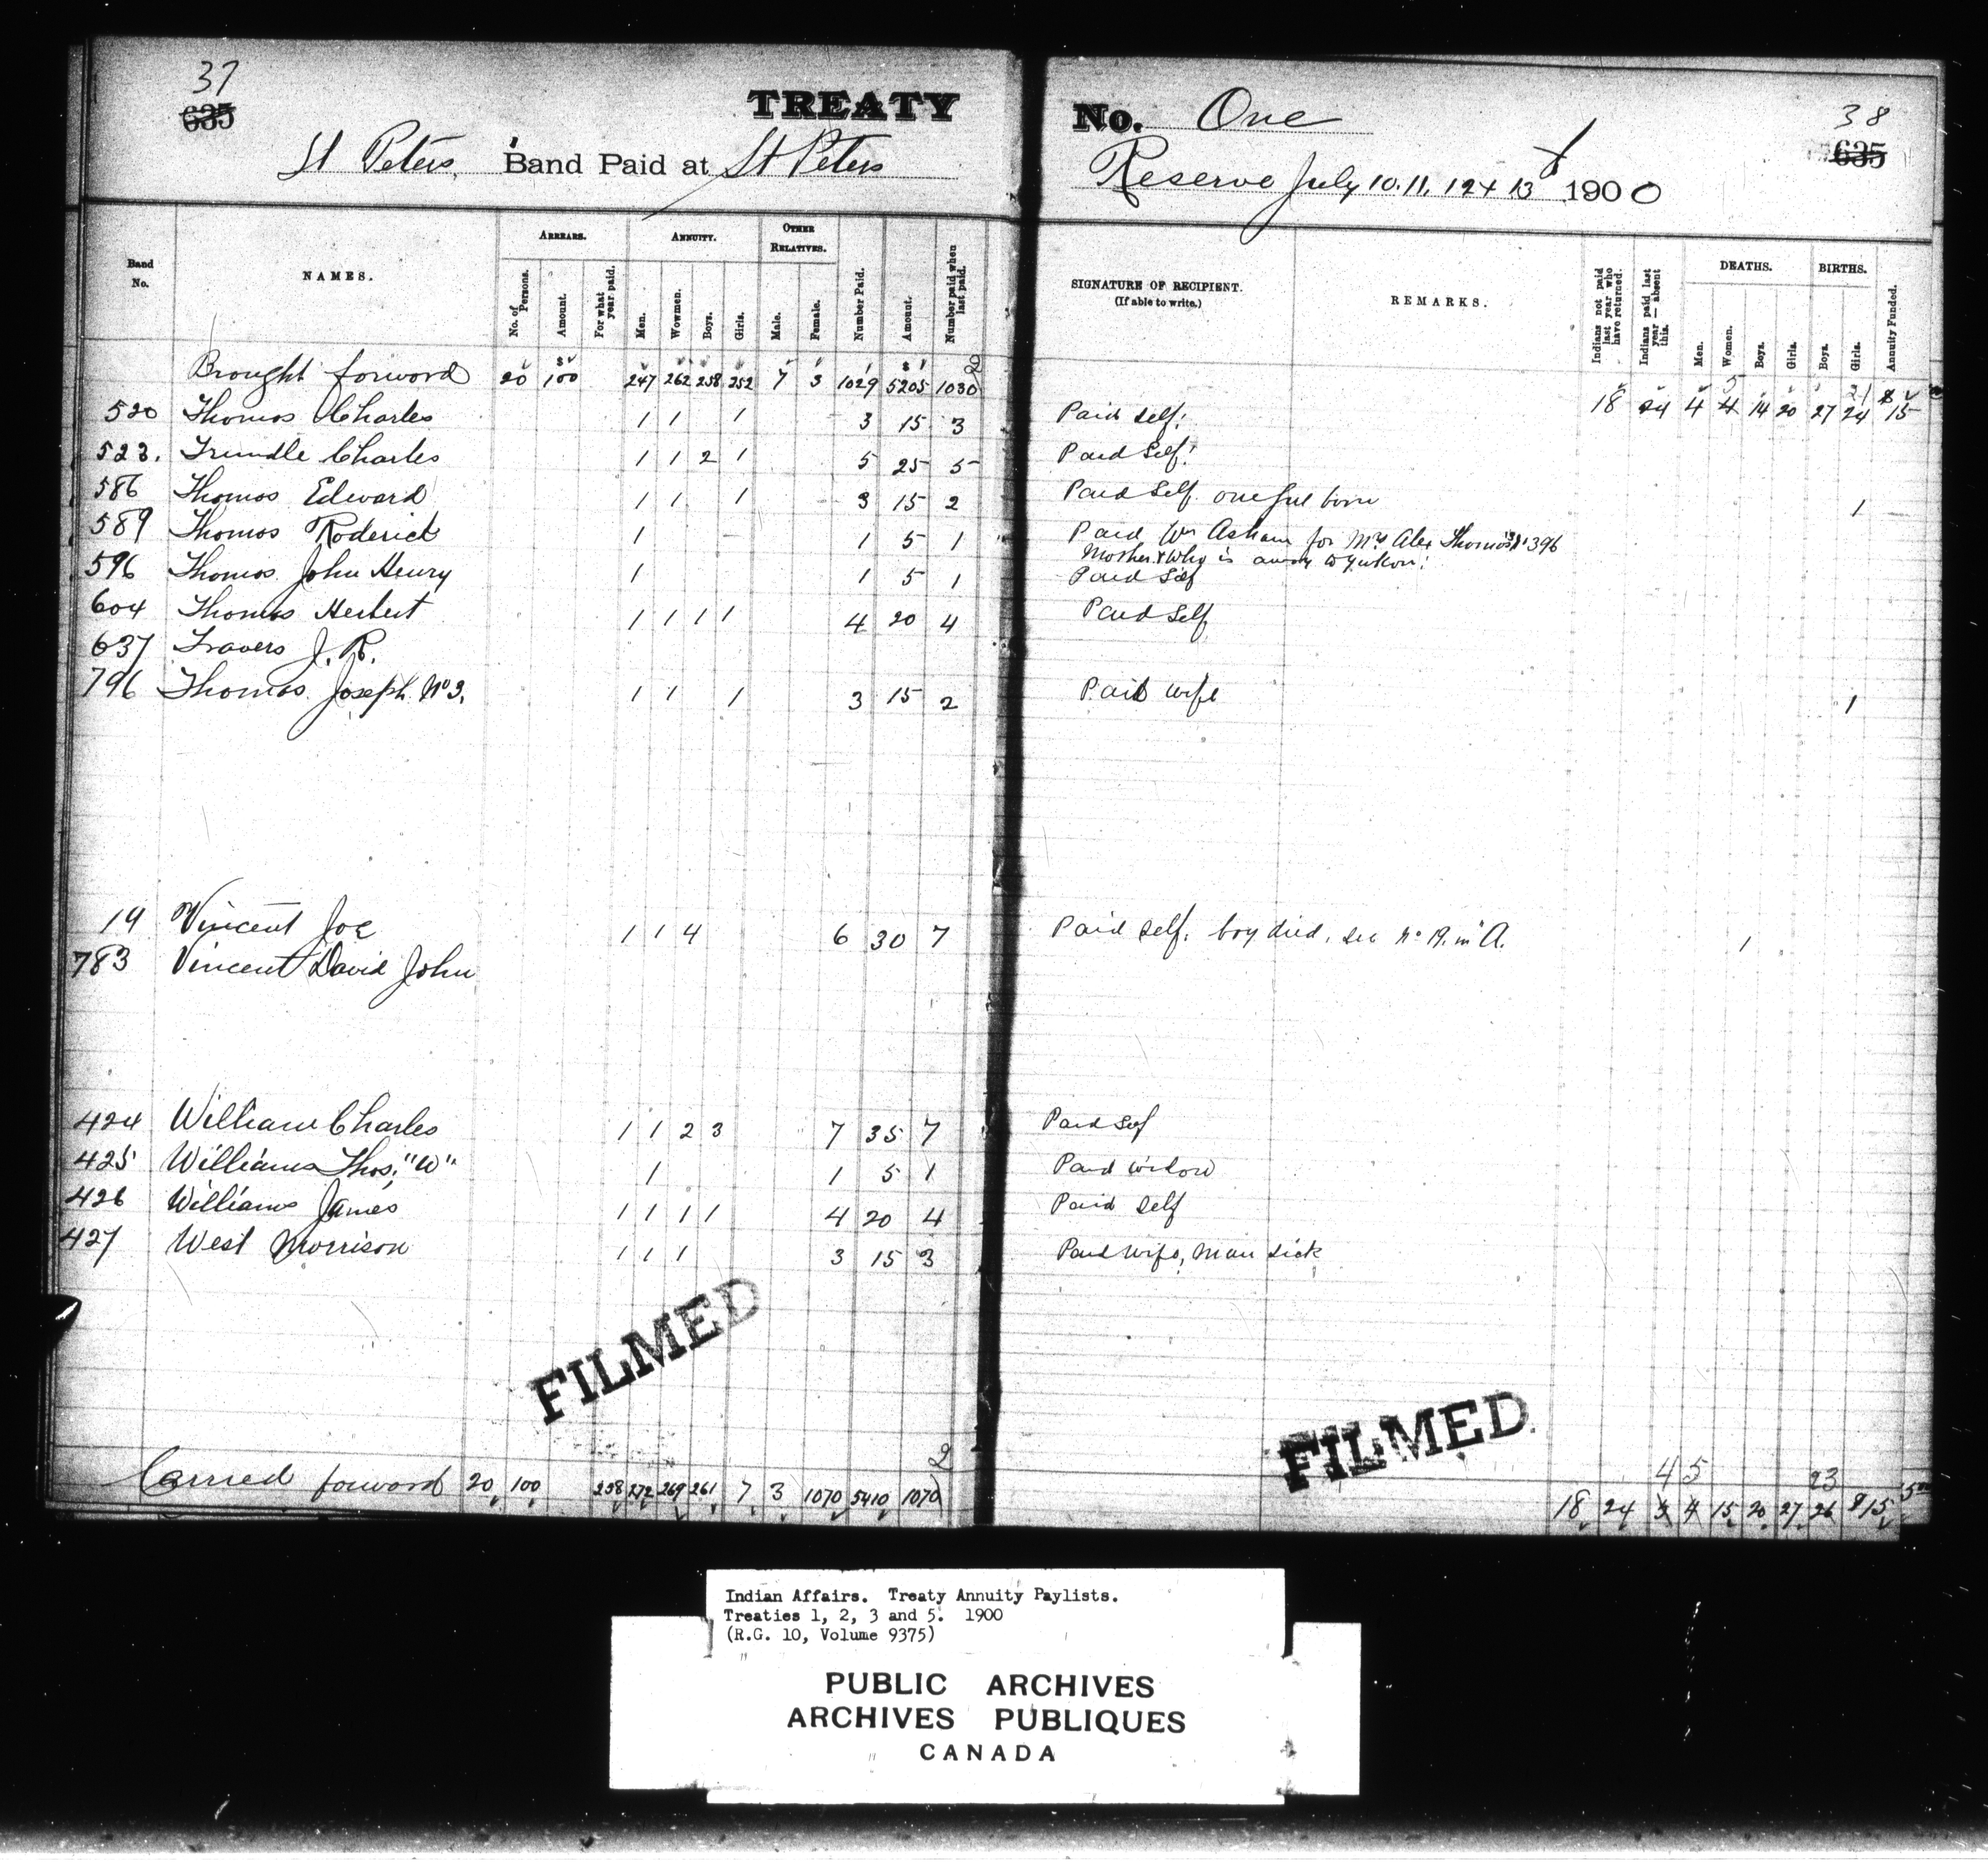 37
635
TREATY No. One
38
635
St Peters, Band Paid at St Peters Reserve July 10. 11, 12 & 13 1900
Band No. NAMES. ARREARS. ANNUITY. OTHER RELATIVES. Number Paid. Amount. Number paid when last paid. SIGNATURE OF RECIPIENT. (If able to write.) REMARKS. Indians not paid last year who have returned. Indians paid last year — absent this. DEATHS. BIRTHS. Annuity Funded.
No. of Persons. Amount. For what year paid. Men. Wowmen. Boys. Girls. Male. Female. Men. Women. Boys. Girls. Boys. Girls.
Brought forward 20 100 247 262 258 252 7 3 1029 5205 1030 2 18 24 4 4 5 14 20 27 24 21 $ 15
520 Thomas Charles 1 1 1 3 15 3 Paid Self.
523. Trundle Charles 1 1 2 1 5 25 5 Paid Self.
586 Thomas Edward 1 1 1 3 15 2 Paid Self one girl born 1
589 Thomas Roderick 1 1 5 1 Paid Wm Asham for Mrs Alex Thomas No 396
Mother & Who is away to Yukon.
596 Thomas John Henry 1 1 5 1 Paid Self
604 Thomas Herbert 1 1 1 1 4 20 4 Paid Self
637 Travers J. R.
796 Thomas Joseph No 3. 1 1 1 3 15 2 Paid wife 1
19 Vincent Joe 1 1 4 6 30 7 Paid Self. boy died. see No 19. in A. 1
783 Vincent David John
424 William Charles 1 1 2 3 7 35 7 Paid Self
425 Williams Thos. "W" 1 1 5 1 Paid widow
426 Williams James 1 1 1 1 4 20 4 Paid Self
427 West Morrison 1 1 1 3 15 3 Paid wife, man sick
FILMED
FILMED
Carried forward 20 100 258 272 269 261 7 3 1070 5410 1070 2 18 24 4 5 15 20 27 26 23 $ 15
Indian Affairs. Treaty Annuity Paylists.
Treaties 1, 2, 3 and 5. 1900
(R.G. 10, Volume 9375)
PUBLIC ARCHIVES
ARCHIVES PUBLIQUES
CANADA